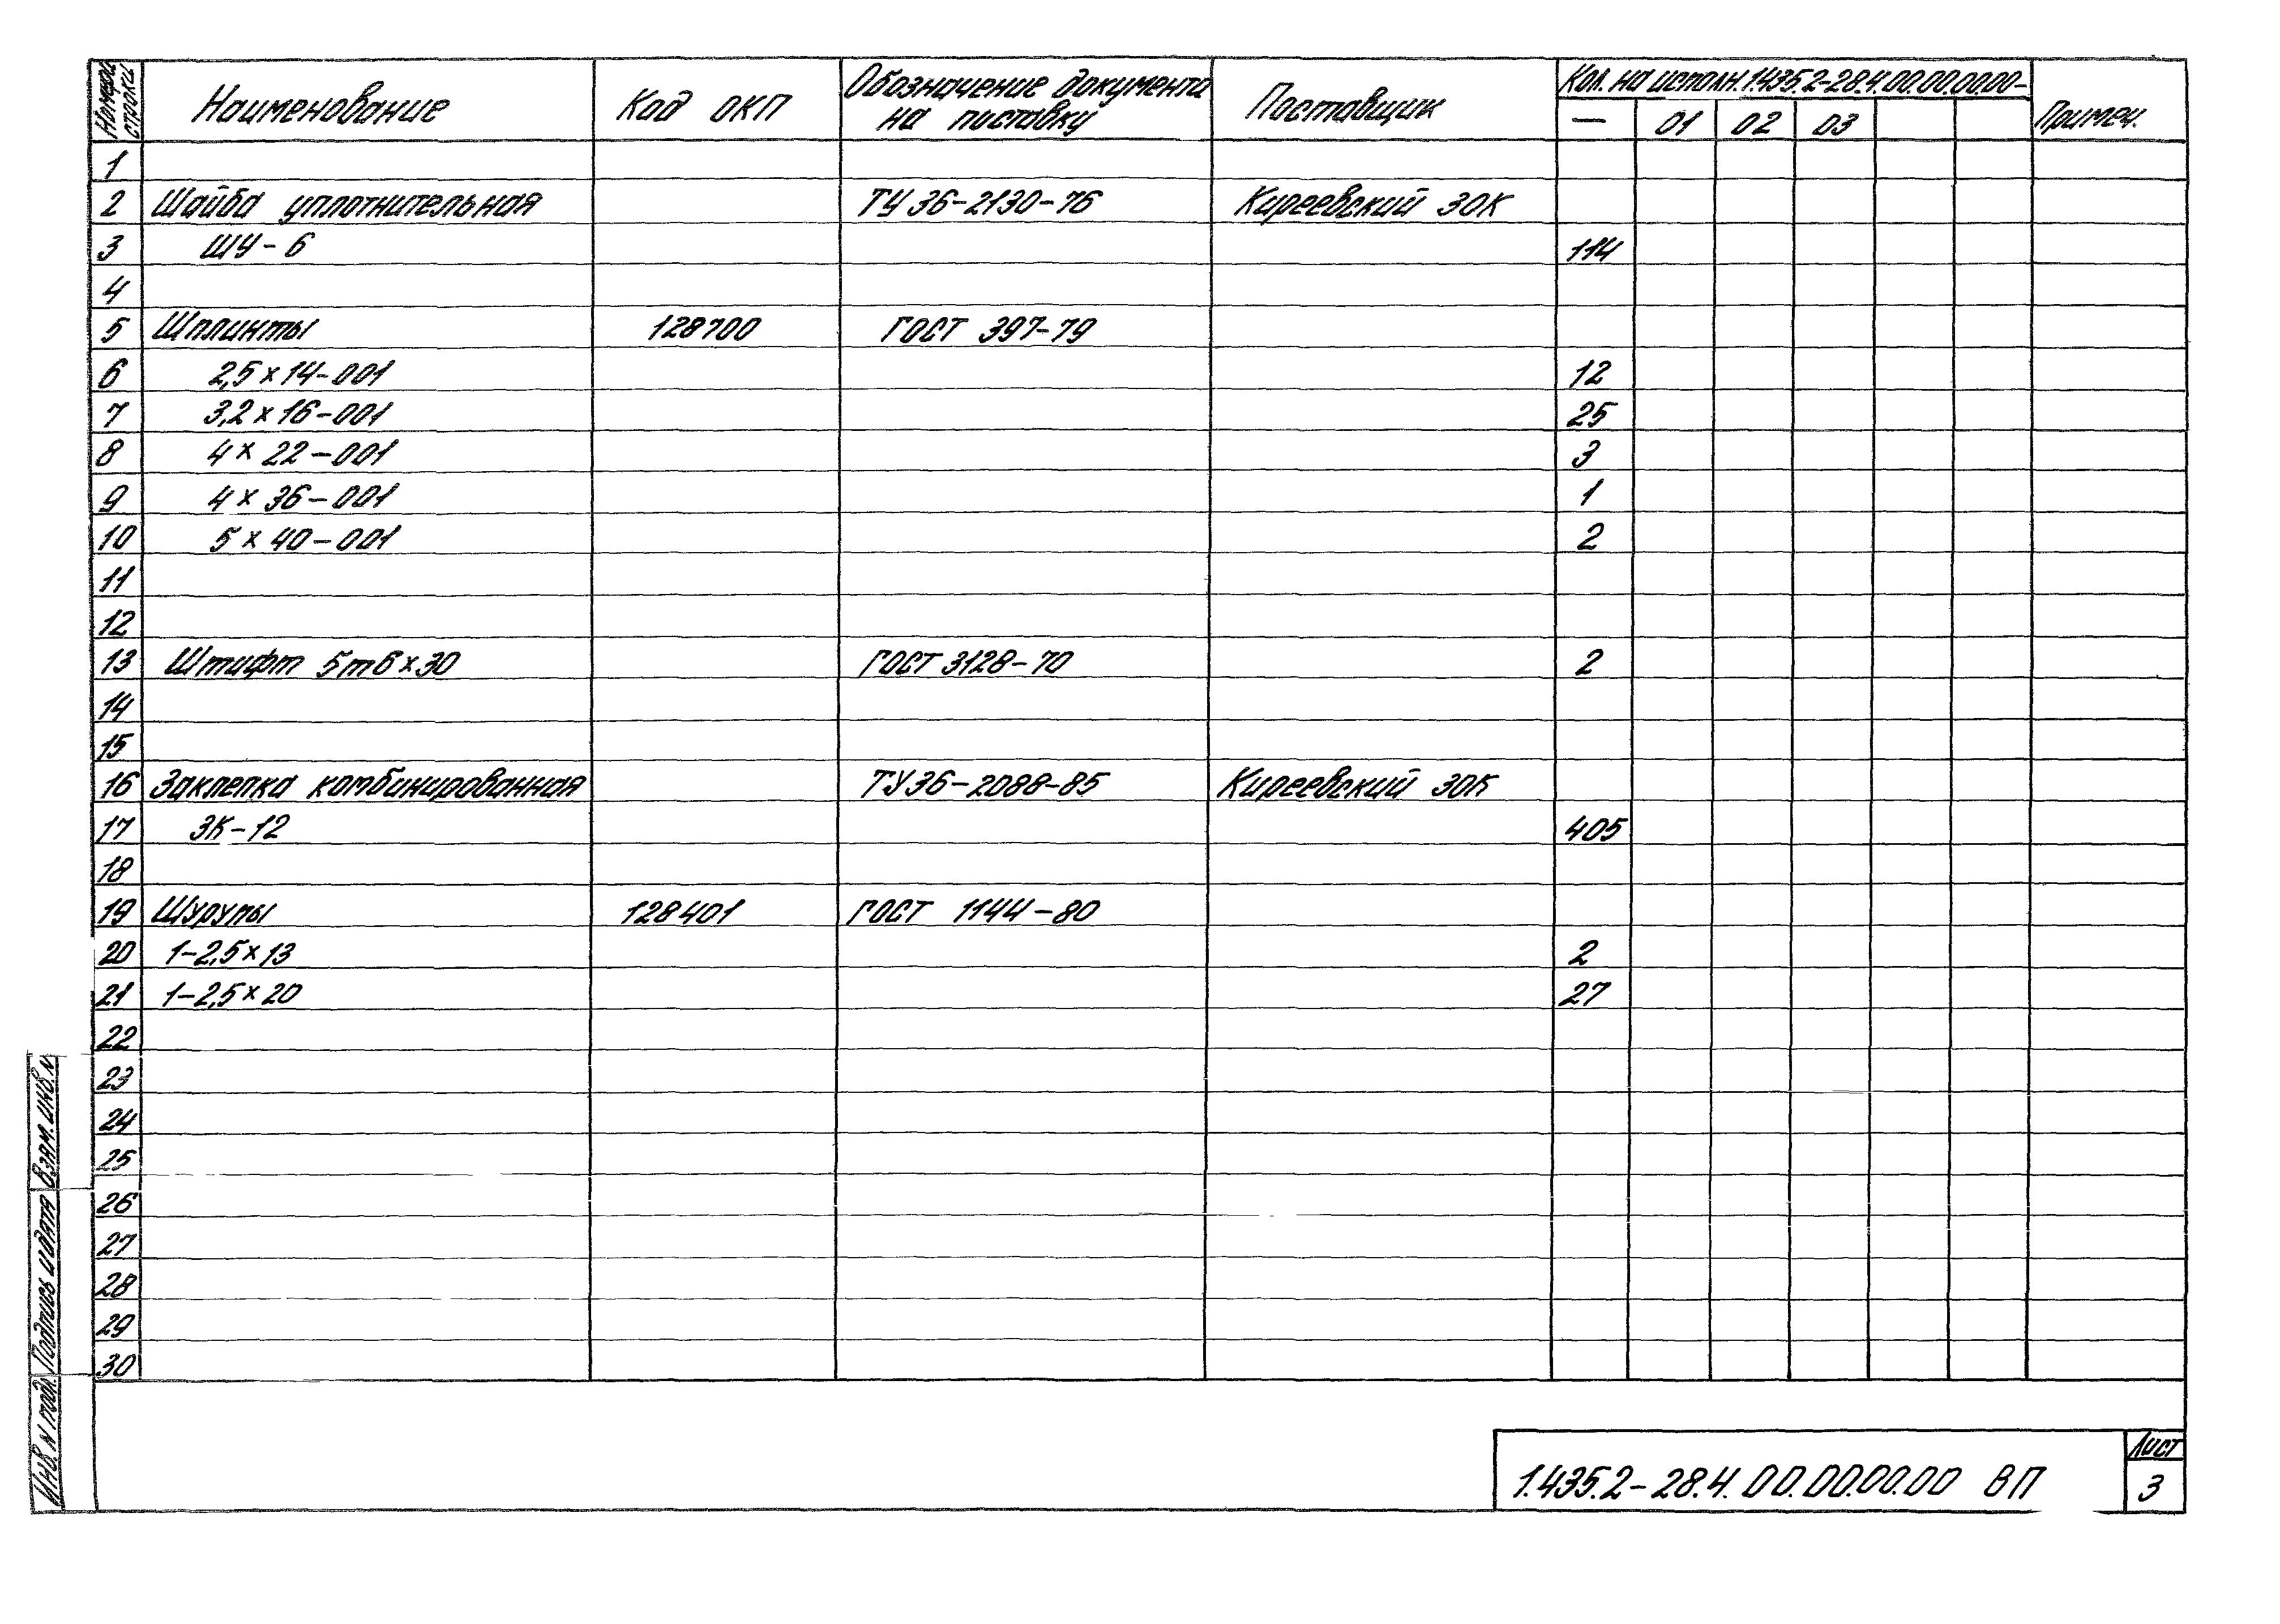 Номер строки Наименование Код ОКП Обозначение документа на поставку Поставщик Кол. на исполн. 1.435.2-28.4.00.00.00.00- Примеч.
— 01 02 03
1
2 Шайба уплотнительная ТУ 36-2130-76 Киреевский ЗОК
3 ШУ-6 114
4
5 Шплинты 128700 ГОСТ 397-79
6 2,5×14-001 12
7 3,2×16-001 25
8 4×22-001 3
9 4×36-001 1
10 5×40-001 2
11
12
13 Штифт 5m6×30 ГОСТ 3128-70 2
14
15
16 Заклепка комбинированная ТУ36-2088-85 Киреевский ЗОК
17 ЗК-12 405
18
19 Шурупы 128401 ГОСТ 1144-80
20 1-2,5×13 2
21 1-2,5×20 27
22
23
24
25
26
27
28
29
30
Инв. N подл. Подпись и дата Взам. инв. N
1.435.2-28.4.00.00.00.00 ВП
Лист
3